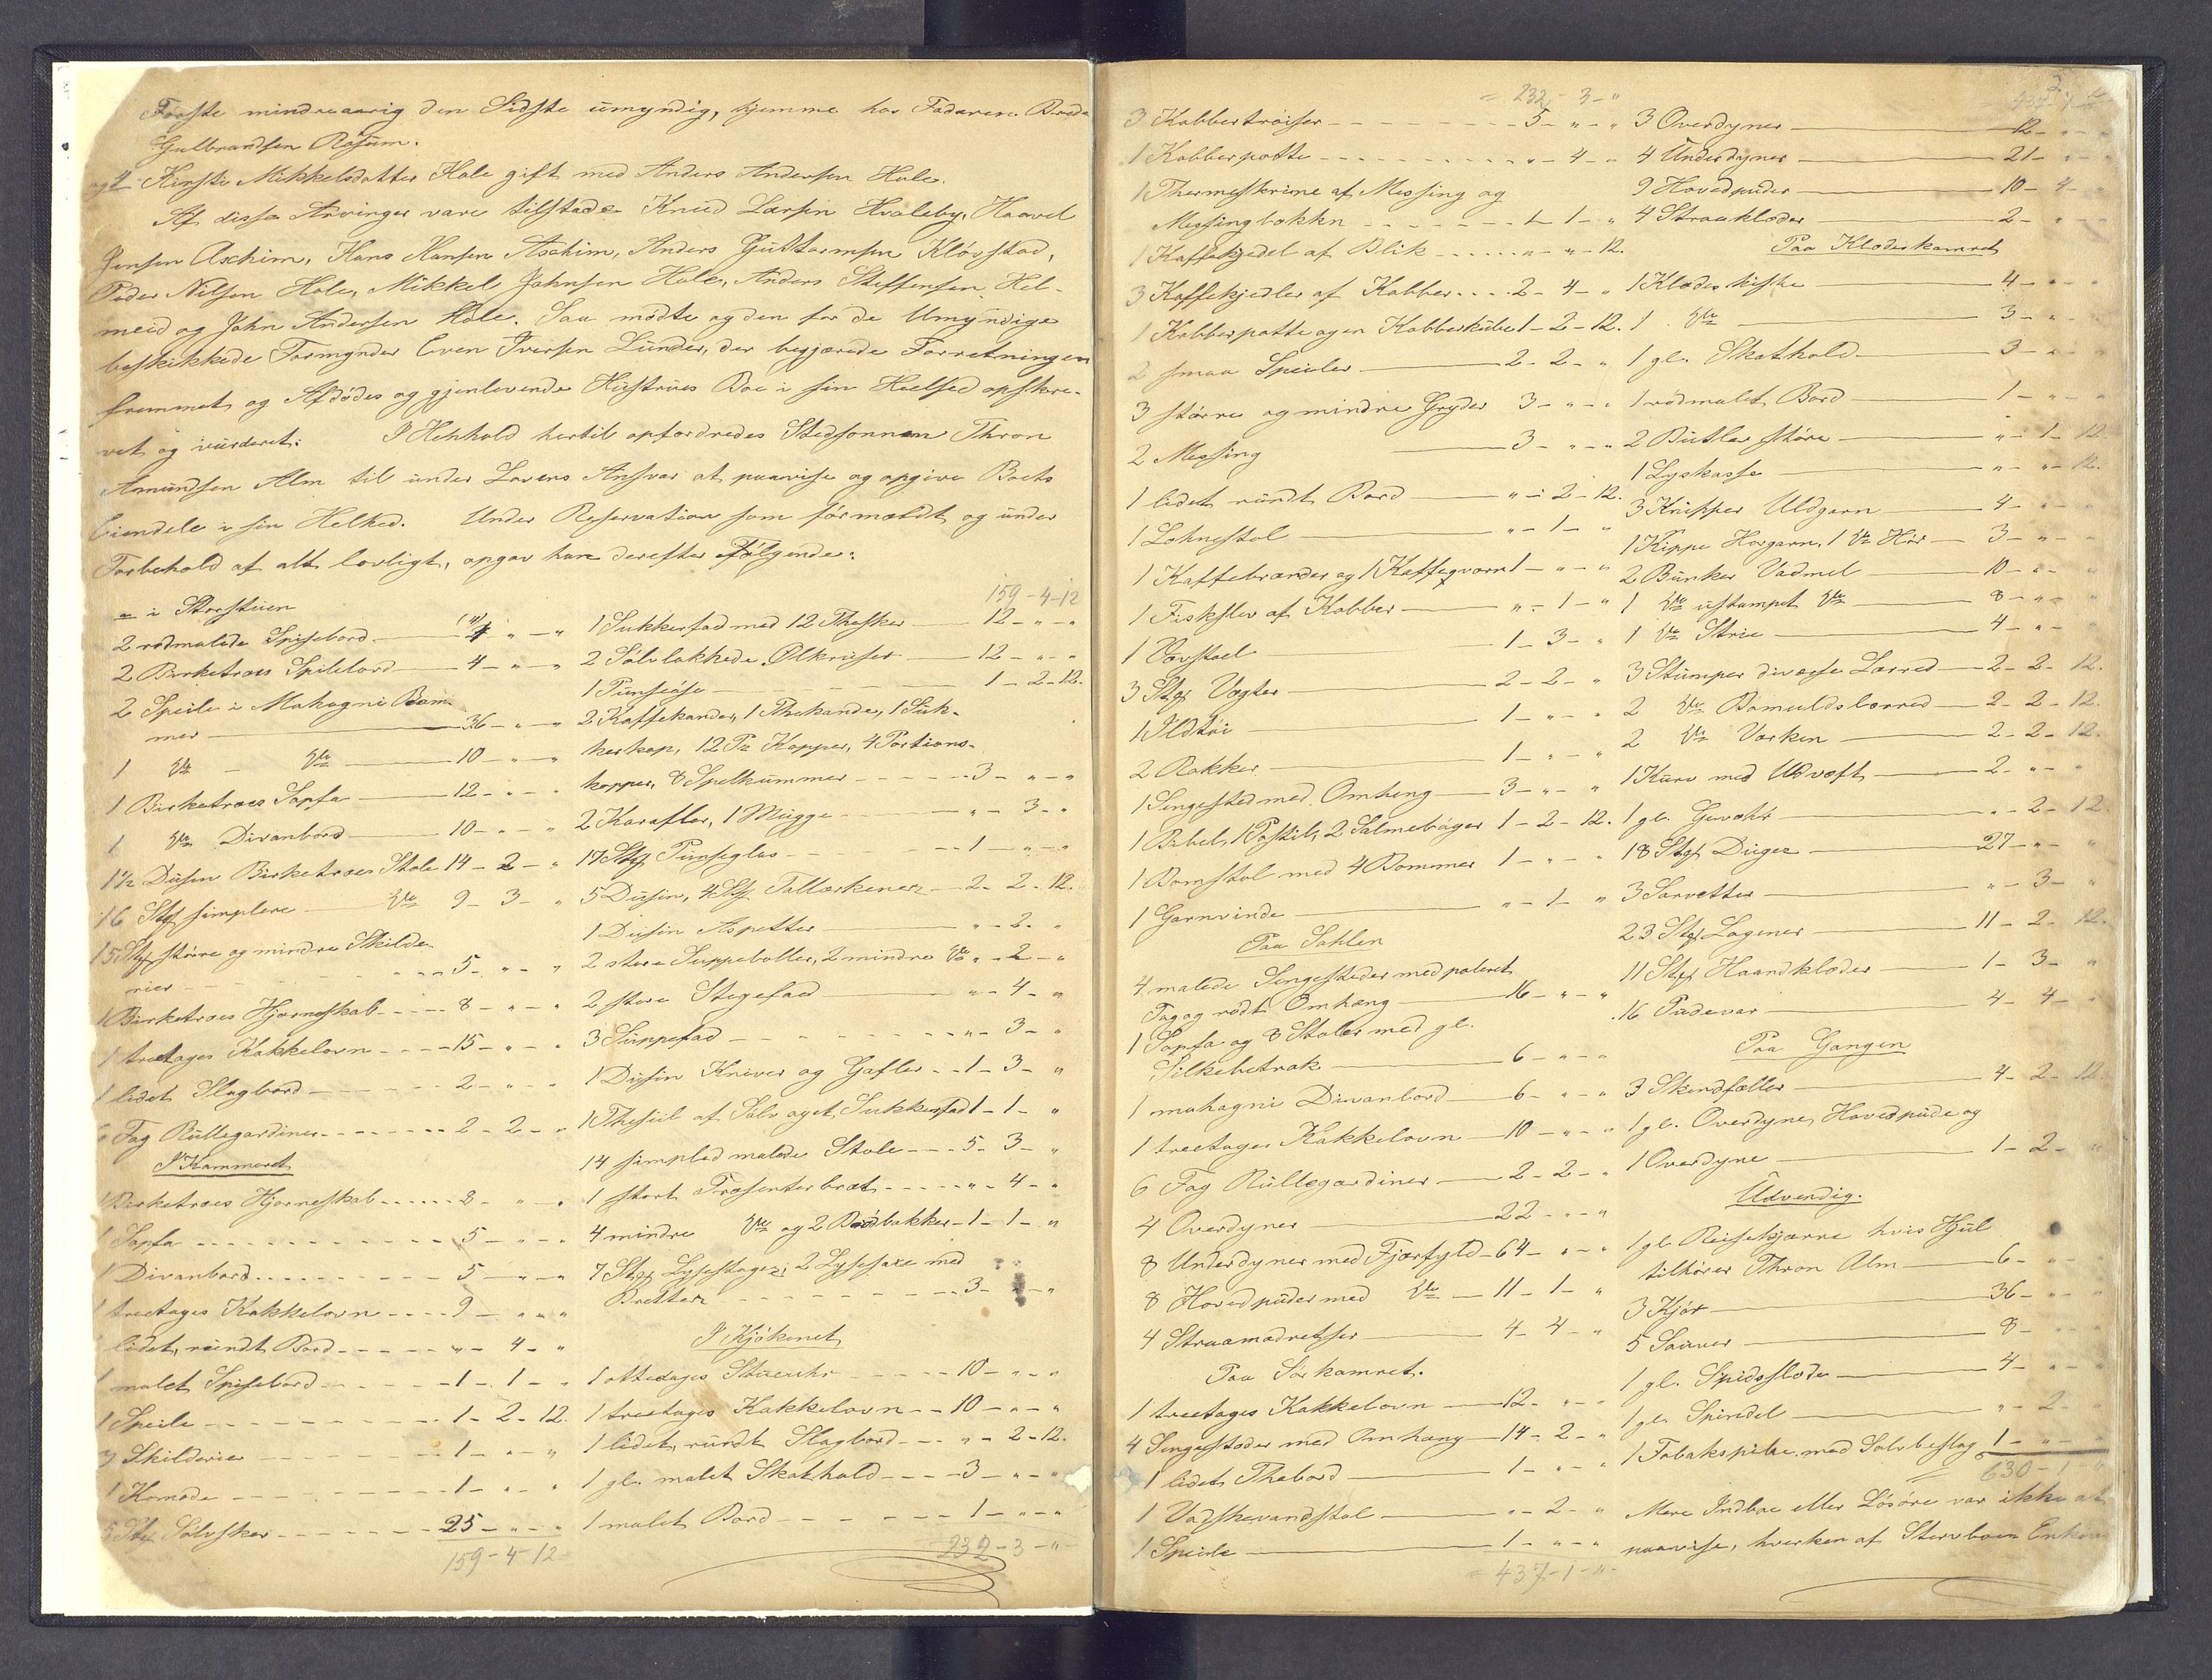 Første mindreaarig den Sidste umyndig, hjemme hos Faderen Brede
Gulbrandsen Røsum.
og 4 Kirsti Mikkelsdatter Hole gift med Anders Andersen Hole.
Af disse Arvinger vare tilstæde Knud Larsen Hvaleby, Haavel
Jensen Aschim, Hans Hansen Aschim, Anders Guttormsen Kløvstad,
Peder Nilsen Hole, Mikkel Johnsen Hole, Anders Steffensen Hel-
meid og John Andersen Hole. Saa mødte og den for de Umyndige
beskikkede Formynder Even Iversen Lunder, der begjærede Forretningen
fremmet og Afdødes og gjenlevende Hustrues Boe i sin Heelhed opskre-
vet og vurderet. I Henhold hertil opfordredes Stedsønnen Thron
Amundsen Alm til under Lovens Ansvar at paavise og opgive Boets
Eiendele i sin Helhed. Under Reservation som formældt og under
Forbehold af alt lovligt, opgav han derefter Følgende:
a i Storstuen
2 rødmalede Spisebord 4 - " - "
2 Birketræes Spillebord 4 - " - "
2 Speile i Mahagni Ram-
mer 36 - " - "
1 do - do 10 - " - "
1 Birketræes Sopfa 12 - " - "
1 do Divanbord 10 - " - "
1 1/2 Dusin Birketræes Stole 14 - 2 - "
16 Stkr simplere do 9 - 3 - "
15 Stkr større og mindre Skilde-
rier 5 - " - "
1 Birketræes Hjørneskab 8 - " - "
1 treetages Kakkelovn 15 - " - "
1 lidet Slagbord 2 - " - "
6 Fag Rullegardiner 2 - 2 - "
I Kammeret
1 Birketræes Hjørneskab 8 - " - "
1 Sopfa 5 - " - "
1 Divanbord 5 - " - "
1 treetages Kakkelovn 9 - " - "
1 lidet, rundt Bord " - 4 - "
1 malet Spisebord 1 - 1 - "
1 Speile 1 - 2 - 12.
7 Skilderier 1 - " - "
1 Komode 1 - " - "
5 Stkr Sølvskeer 25 - " - "
159 - 4 - 12
159 - 4 - 12
1 Sukkerfad med 12 Theskeer 12 - " - "
2 Sølvlokkede Ølkruser 12 - " - "
1 Punseøse 1 - 2 - 12.
2 Kaffekander, 1 Thekande, 1 Suk-
kerkop, 12 Pr Kopper, 4 Portions-
kopper, 8 Spelkummer 3 - " - "
2 Karafler, 1 Mugge " - 3 - "
17 Stkr Punseglas 1 - " - "
5 Dusin, 4 Stkr Tallærkener 2 - 2 - 12.
1 Dusin Aspetter " - 2 - "
2 store Suppeboller, 2 mindre do " - 2 - "
2 store Stegefad " - 4 - "
3 Suppefad " - 3 - "
1 Dusin Kniver og Gafler 1 - 3 - "
1 Thesiil af Sølv og et Sukkerfad 1 - 1 - "
14 simpled malede Stole 5 - 3 - "
1 stort Præsenterbræt " - 4 - "
4 mindre do og 2 Brødbakker 1 - 1 - "
7 Stkr Lysestager, 2 Lysesaxe med
Bretter 3 - " - "
I Kjøkenet
1 ottedages Stueuhr 10 - " - "
1 treetages Kakkelovn 10 - " - "
1 lidet, rundt Slagbord " - 2 - 12.
1 gl. malet Skathold 3 - " - "
1 malet Bord 1 - " - "
232 - 3 - "
= 232 - 3 - "
3 Kobbertrøiser 5 - " - "
1 Kobberpotte " - 4 - "
1 Theemaskine af Messing og
Messingbakke 1 - 1 - "
1 Kaffekjedel af Blik " - " - 12.
3 Kaffekjedler af Kobber 2 - 4 - "
1 Kobberpotte og en Kobberkube 1 - 2 - 12.
2 smaa Speiler 2 - 2 - "
3 større og mindre Gryder 3 - " - "
2 Messing 3 - " - "
1 lidet rundt Bord " - 2 - 12.
1 Lehnestol " - 1 - "
1 Kaffebrænder og 1 Kaffeqværn 1 - " - "
1 Fiskslev af Kobber " - 1 - "
1 Vævstoel 1 - 3 - "
3 Stkr Vægter 2 - 2 - "
1 Ildtøi 1 - " - "
2 Rokker 1 - " - "
1 Sengested med Omheng 3 - " - "
1 Bibel, 1 Postil, 2 Salmebøger 1 - 2 - 12.
1 Bomstol med 4 Bommer 1 - " - "
1 Garnvinde " - 1 - "
Paa Sahlen
4 malede Sengesteder med poleret
Fag og rødt Omhæng 16 - " - "
1 Sopfa og 8 Stoler med gl.
Silkebetræk 6 - " - "
1 mahagni Divanbord 6 - " - "
1 treetages Kakkelovn 10 - " - "
6 Fag Rullegardiner 2 - 2 - "
4 Overdyner 22 - " - "
8 Underdyner med Fjærfyld 64 - " - "
8 Hovedpuder med do 11 - 1 - "
4 Straamadretser 4 - 4 - "
Paa Sørkamret.
1 treetages Kakkelovn 12 - " - "
4 Sengesteder med Omhæng 14 - 2 - "
1 lidet Thebord 1 - " - "
1 Vadskevandstol " - 2 - "
1 Speile 1 - " - "
= 437 - 1 - "
2
437 - 1 - "
3 Overdyner 12 - " - "
4 Underdyner 21 - " - "
9 Hovedpuder 10 - 4 - "
4 Straaklæder 2 - " - "
Paa Klædeskamret
1 Klædeskiste 4 - " - "
1 do 3 - " - "
1 gl. Skathold 3 - " - "
1 rødmalet Bord 1 - " - "
2 Butler større " - 1 - 12.
1 Lyskasse " - " - 12.
3 Knipper Uldgarn 4 - " - "
1 Kippe Horgarn, 1 do Hør 3 - " - "
2 Bunker Vadmel 10 - " - "
1 do ustampet do 8 - " - "
1 do Strie 4 - " - "
3 Stumper diverse Lærred 2 - 2 - 12.
2 do Bomuldslærred 2 - 2 - 12.
2 do Værken 2 - 2 - 12.
1 Kurv med Uldvæft 2 - " - "
1 gl. Gevæhr " - 2 - 12.
18 Stkr Duger 27 - " - "
3 Servetter " - 3 - "
23 Stkr Lagener 11 - 2 - 12.
11 Stkr Haandklæder 1 - 3 - "
16 Pudevar 4 - 4 - "
Paa Gangen
3 Skindfæller 4 - 2 - 12
1 gl. Overdyne, Hovedpude og
1 Overdyne 1 - 2 - "
Udvendig.
1 gl. Reisekjærre hvis Hjul
tilhører Thron Alm 6 - " - "
3 Kjør 36 - " - "
5 Sauer 8 - " - "
1 gl. Spidsslæde 4 - " - "
1 gl. Spindel " - 2 - "
1 Tobakspibe med Sølvbeslag 1 - " - "
= 630 - 1 - "
Mere Indboe eller Løsøre var ikke at
paavise, hverken af Stervboen Enken